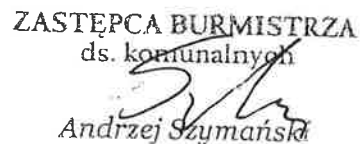 ZASTĘPCA BURMISTRZA
ds. komunalnych
Andrzej Szymański